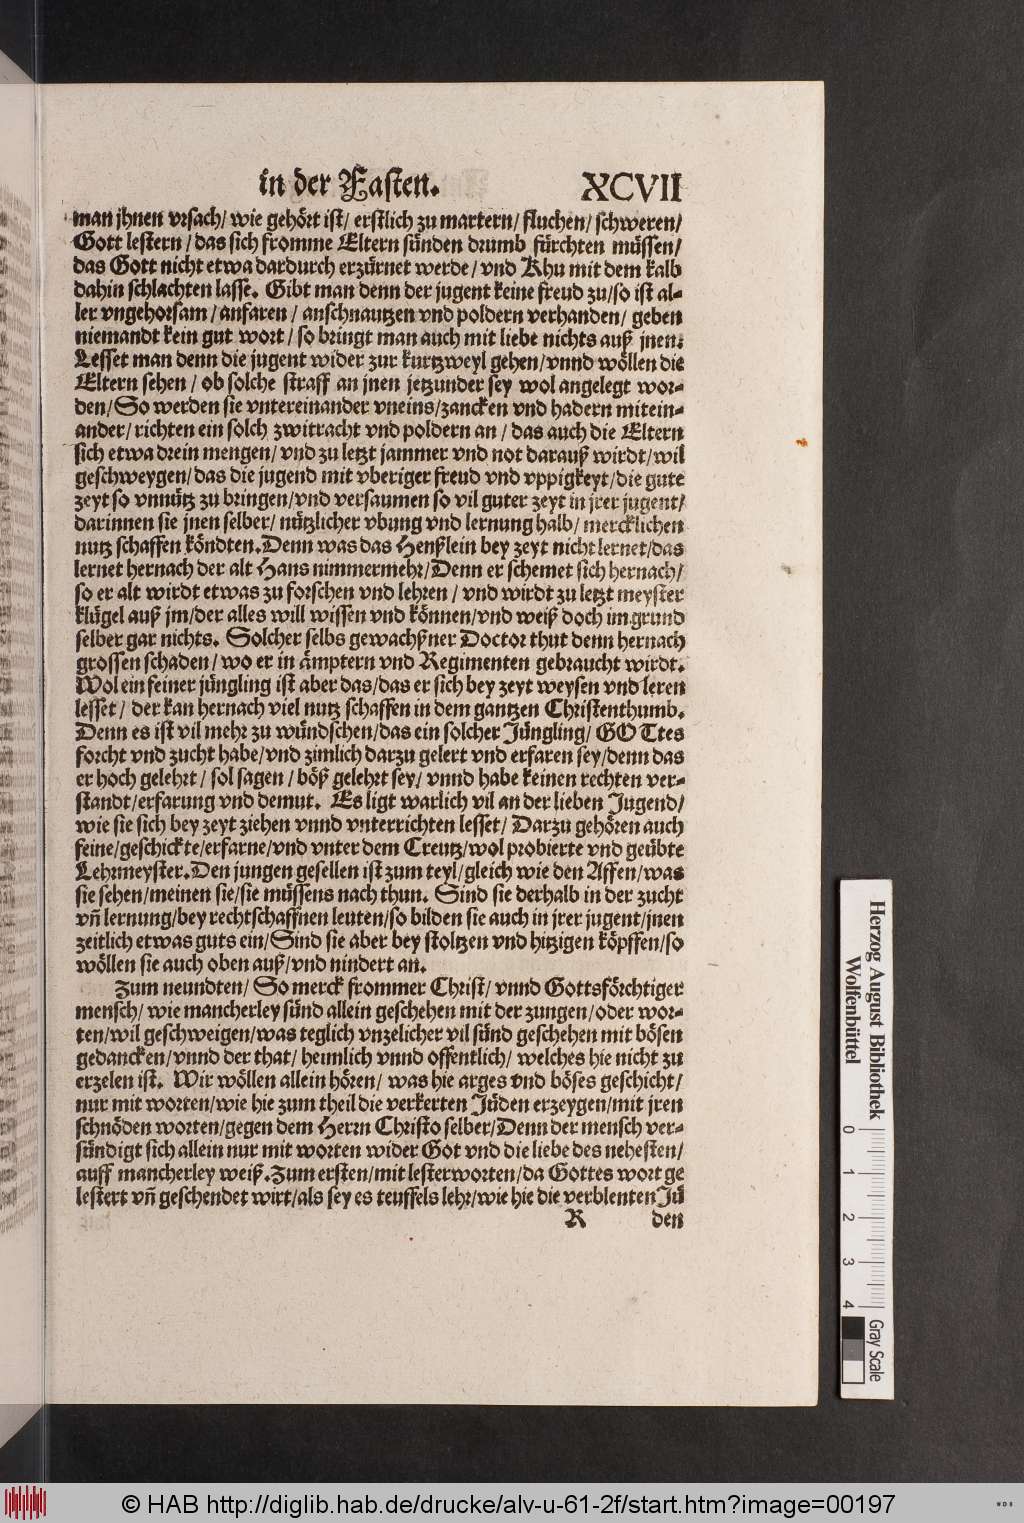 in der Fasten. XCVII
man jhnen vrsach/ wie gehört ist/ erstlich zu martern/ fluchen/ schweren/
Gott lestern/ das sich fromme Eltern sünden drumb fürchten müssen/
das Gott nicht etwa dardurch erzürnet werde/ vnd Khu mit dem kalb
dahin schlachten lasse. Gibt man denn der jugent keine freud zu/ so ist al-
ler vngehorsam/ anfaren/ anschnautzen vnd poldern verhanden/ geben
niemandt kein gut wort/ so bringt man auch mit liebe nichts auß jnen.
Lesset man denn die jugent wider zur kurtzweyl gehen/ vnnd wöllen die
Eltern sehen/ ob solche straff an jnen jetzunder sey wol angelegt wor-
den/ So werden sie vntereinander vneins/ zancken vnd hadern mitein-
ander/ richten ein solch zwitracht vnd poldern an/ das auch die Eltern
sich etwa drein mengen/ vnd zu letzt jammer vnd not darauß wirdt/ wil
geschweygen/ das die jugend mit vberiger freud vnd vppigkeyt/ die gute
zeyt so vnnütz zu bringen/ vnd versaumen so vil guter zeyt in jrer jugent/
darinnen sie jnen selber/ nützlicher vbung vnd lernung halb/ mercklichen
nutz schaffen köndten. Denn was das Henßlein bey zeyt nicht lernet/ das
lernet hernach der alt Hans nimmermehr/ Denn er schemet sich hernach/
so er alt wirdt etwas zu forschen vnd lehren/ vnd wirdt zu letzt meyster
klügel auß jm/ der alles will wissen vnd können/ vnd weiß doch im grund
selber gar nichts. Solcher selbs gewachßner Doctor thut denn hernach
grossen schaden/ wo er in ämptern vnd Regimenten gebraucht wirdt.
Wol ein feiner jüngling ist aber das/ das er sich bey zeyt weysen vnd leren
lesset/ der kan hernach viel nutz schaffen in dem gantzen Christenthumb.
Denn es ist vil mehr zu wündschen/ das ein solcher Jüngling/ GOTtes
forcht vnd zucht habe/ vnd zimlich darzu gelert vnd erfaren sey/ denn das
er hoch gelehrt/ sol sagen/ böß gelehrt sey/ vnnd habe keinen rechten ver-
standt/ erfarung vnd demut. Es ligt warlich vil an der lieben Jugend/
wie sie sich bey zeyt ziehen vnnd vnterrichten lesset/ Darzu gehören auch
feine/ geschickte/ erfarne/ vnd vnter dem Creutz/ wol probierte vnd geübte
Lehrmeyster. Den jungen gesellen ist zum teyl/ gleich wie den Affen/ was
sie sehen/ meinen sie/ sie müssens nach thun. Sind sie derhalb in der zucht
vñ lernung/ bey rechtschaffnen leuten/ so bilden sie auch in jrer jugent/ jnen
zeitlich etwas guts ein/ Sind sie aber bey stoltzen vnd hitzigen köpffen/ so
wöllen sie auch oben auß/ vnd nindert an.
Zum neundten/ So merck frommer Christ/ vnnd Gottsförchtiger
mensch/ wie mancherley sünd allein geschehen mit der zungen/ oder wor-
ten/ wil geschweigen/ was teglich vnzelicher vil sünd geschehen mit bösen
gedancken/ vnnd der that/ heimlich vnnd offentlich/ welches hie nicht zu
erzelen ist. Wir wöllen allein hören/ was hie arges vnd böses geschicht/
nur mit worten/ wie hie zum theil die verkerten Jüden erzeygen/ mit jren
schnöden worten/ gegen dem Herrn Christo selber/ Denn der mensch ver-
sündigt sich allein nur mit worten wider Got vnd die liebe des nehesten/
auff mancherley weiß. Zum ersten/ mit lesterworten/ da Gottes wort ge
lestert vñ geschendet wirt/ als sey es teuffels lehr/ wie hie die verblenten Jü
R den
Herzog August Bibliothek
Wolfenbüttel
0 1 2 3 4
Gray Scale
© HAB http://diglib.hab.de/drucke/alv-u-61-2f/start.htm?image=00197
WDB